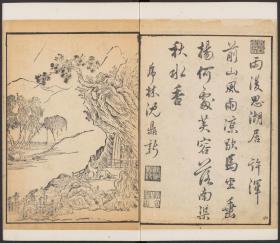 雨後思湖居 許渾
前山風雨涼歇馬坐垂
楊何處芙容落南渠
秋水香